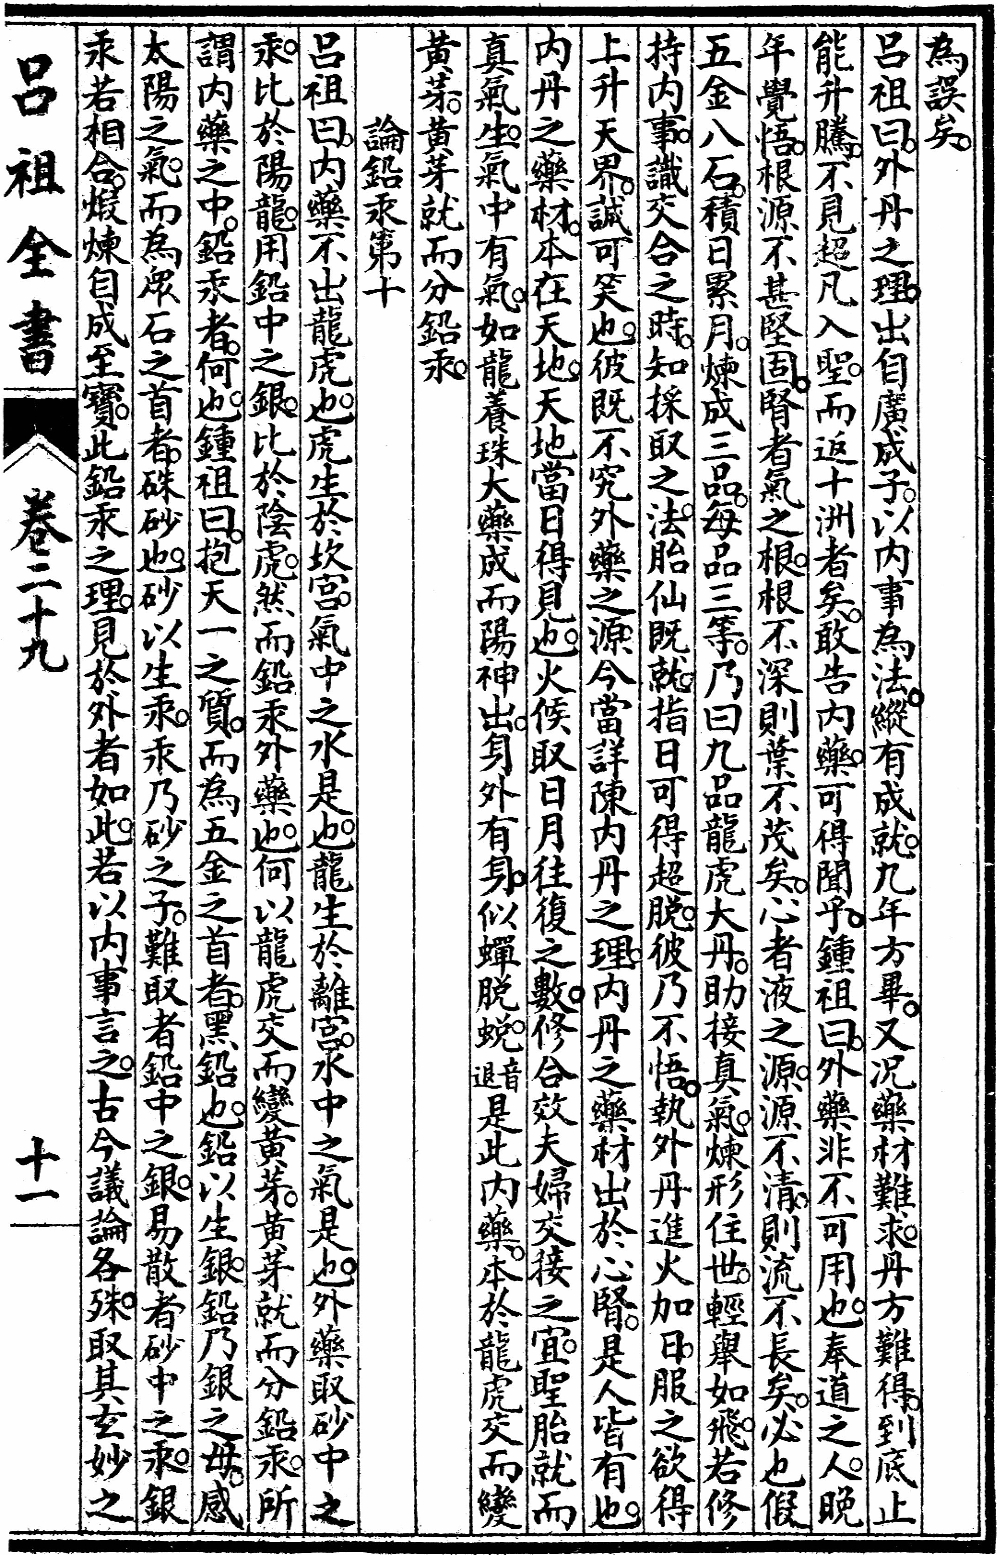 為誤矣。
呂祖曰。外丹之理。出自廣成子。以內事為法。縱有成就。九年方畢。又况藥材難求。丹方難得。到底止
能升騰。不見超凡入聖。而返十洲者矣。敢告內藥。可得聞乎。鍾祖曰。外藥非不可用也。奉道之人。晚
年覺悟。根源不甚堅固。腎者氣之根。根不深則葉不茂矣。心者液之源。源不清。則流不長矣。必也假
五金八石。積日累月。煉成三品。每品三等。乃曰九品龍虎大丹。助接真氣。煉形住世。輕舉如飛。若修
持內事。識交合之時。知採取之法。胎仙既就。指日可得超脫。彼乃不悟。執外丹進火加日。服之欲得
上升天界。誠可笑也。彼既不究外藥之源。今當詳陳內丹之理。內丹之藥材出於心腎。是人皆有也。
內丹之藥材。本在天地。天地當日得見也。火候取日月往復之數。修合效夫婦交接之宜。聖胎就而
真氣生。氣中有氣。如龍養珠。大藥成而陽神出。身外有身。似蟬脫蛻。音退是此內藥。本於龍虎交而變
黃芽。黃芽就而分鉛汞。
論鉛汞第十
呂祖曰。內藥不出龍虎也。虎生於坎宮。氣中之水是也。龍生於離宮。水中之氣是也。外藥取砂中之
汞。比於陽龍。用鉛中之銀。比於陰虎。然而鉛汞外藥也。何以龍虎交而變黃芽。黃芽就而分鉛汞。所
謂內藥之中。鉛汞者。何也。鍾祖曰。抱天一之質。而為五金之首者。黑鉛也。鉛以生銀。鉛乃銀之母。感
太陽之氣。而為眾石之首者。硃砂也。砂以生汞。汞乃砂之子。難取者鉛中之銀。易散者砂中之汞。銀
汞若相合。煅煉自成至寶。此鉛汞之理。見於外者如此。若以內事言之。古今議論各殊。取其玄妙之
呂祖全書
卷二十九
十一